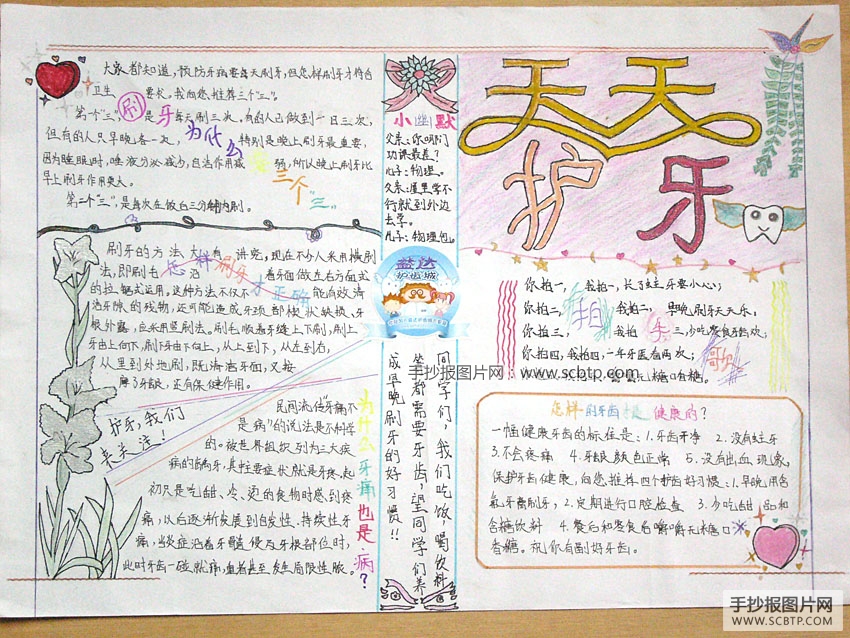 大家都知道,预防牙病要每天刷牙,但怎样刷牙才符合
卫生要求。我向您推荐三个“三”。
第一个“三”,是每天刷三次,有的人已做到一日三次,
但有的人只早晚各一次,特别是晚上刷牙最重要,
因为睡眠时,唾液分泌减少,自洁作用减弱,所以晚上刷牙比
早上刷牙作用更大。
第二个“三”,是每次在饭后三分钟内刷。
刷牙
为什么
三个“三”
刷牙的方法大有讲究,现在不少人采用横刷
法,即刷毛沿着牙面做左右方面式
的拉锯式运用,这种方法不仅不能有效清
洁牙隙的残物,还可能造成牙颈部楔状缺损、牙
根外露,应采用竖刷法。刷毛顺着牙缝上下刷,刷上
牙由上向下,刷下牙由下向上,从上到下,从左到右,
从里到外地刷,既清洁牙面,又按
摩了牙龈,还有保健作用。
怎样刷牙才正确
护牙,我们
来关注!
民间流传“牙痛不
是病”的说法是不科学
的。被世界组织列为三大疾
病的龋牙,其主要症状就是牙疼,起
初只是吃甜、冷、烫的食物时感到疼
痛,以后逐渐发展到自发性、持续性牙
痛,当炎症沿着牙髓侵及牙根部位时,
此时牙齿一碰就痛,重者甚至发生局限性脓。
为什么牙痛也是病?
小幽默
父亲:你哪门
功课最差?
儿子:物理。
父亲:屋里学不
行就到外边
去学。
儿子:物理包。
益达
护齿城
同学们,我们吃饭,喝饮料
等都需要牙齿,望同学们养
成早晚刷牙的好习惯!!
天天
护牙
你拍一,我拍一,长了蛀牙要小心;
你拍二,我拍二,早晚刷牙天天乐,
你拍三,我拍三,少吃零食牙齿欢;
你拍四,我拍四,一年牙医看两次;
无糖口香糖。
拍手歌
怎样的牙齿是健康的?
一幅健康牙齿的标准是:1.牙齿干净 2.没有蛀牙
3.不会疼痛 4.牙龈颜色正常 5.没有出血现象,
保护牙齿健康,向您推荐四个护齿好习惯:1.早晚用含
氟牙膏刷牙,2.定期进行口腔检查 3.少吃甜品和
含糖饮料 4.餐后和零食后嚼嚼无糖口
香糖。祝你有副好牙齿。
手抄报图片网:www.scbtp.com
手抄报图片网
WWW.SCBTP.COM